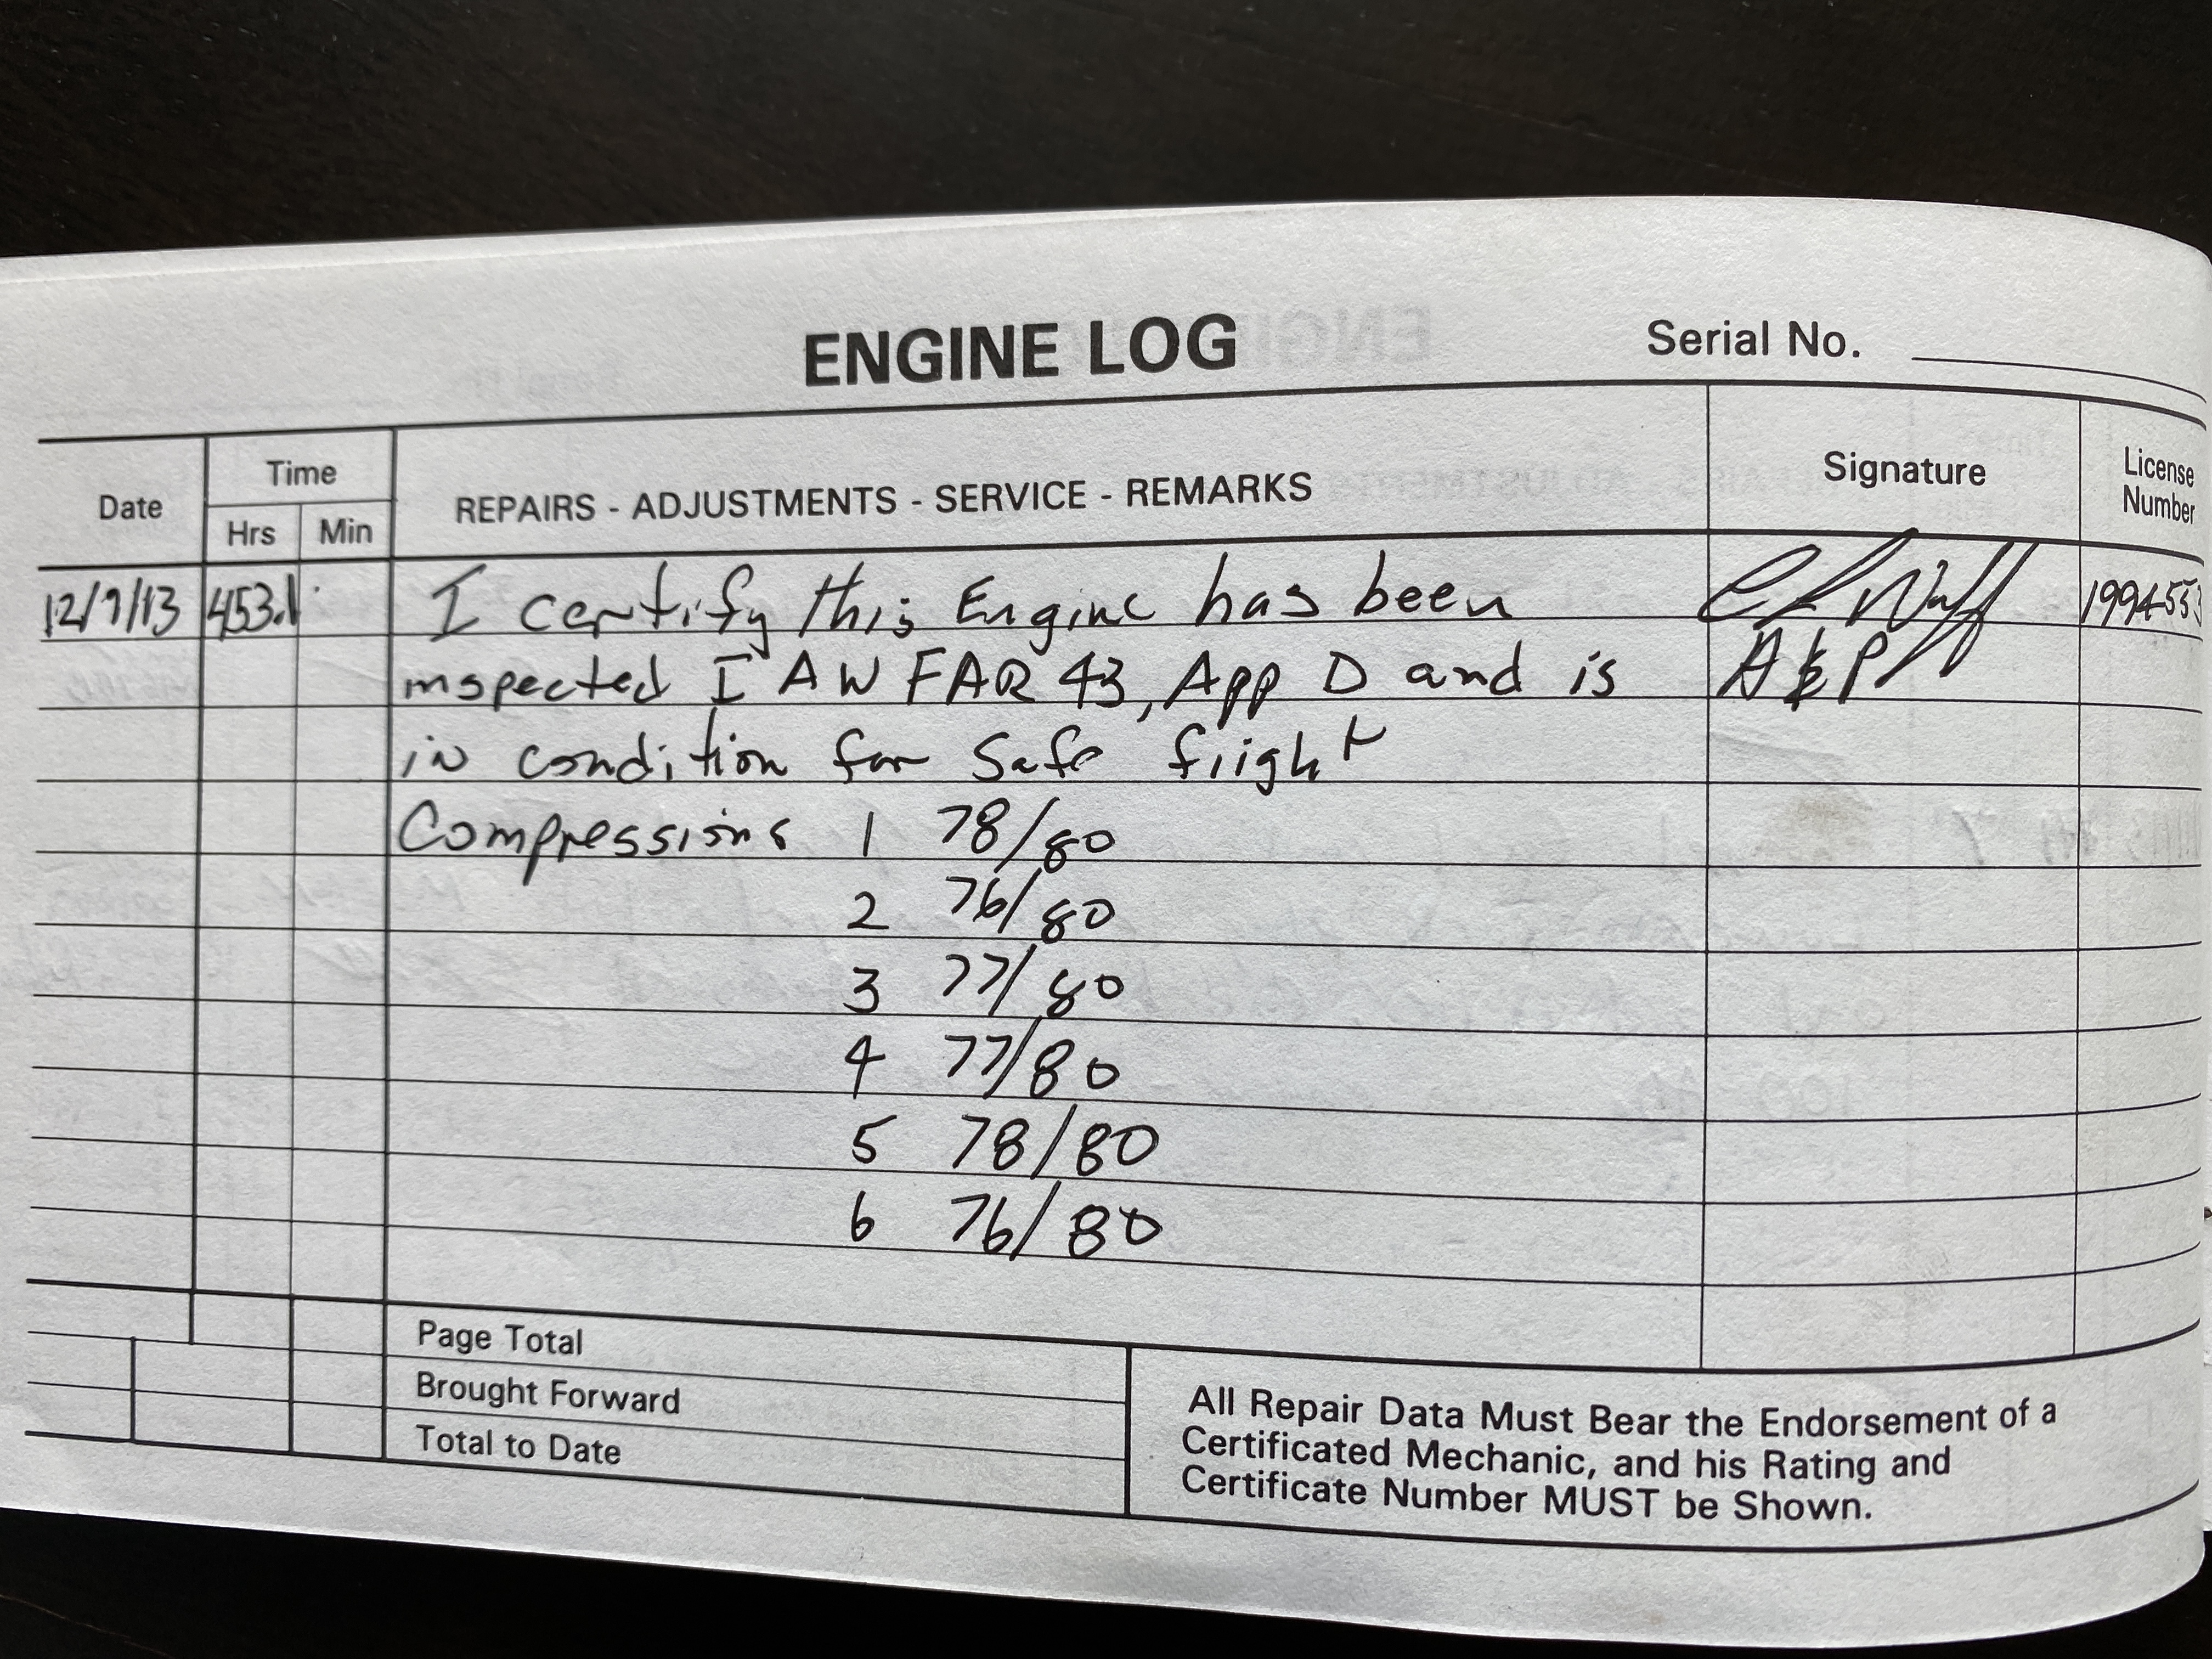 ENGINE LOG
Serial No.
Date
Time
Hrs
Min
REPAIRS - ADJUSTMENTS - SERVICE - REMARKS
Signature
License
Number
12/9/13 453.1 I certify this Engine has been
inspected I AW FAR 43, App D and is A&P
in condition for safe flight
Compressions 1 78/80
2 76/80
3 77/80
4 77/80
5 78/80
6 76/80
Page Total
Brought Forward
Total to Date
All Repair Data Must Bear the Endorsement of a
Certificated Mechanic, and his Rating and
Certificate Number MUST be Shown.